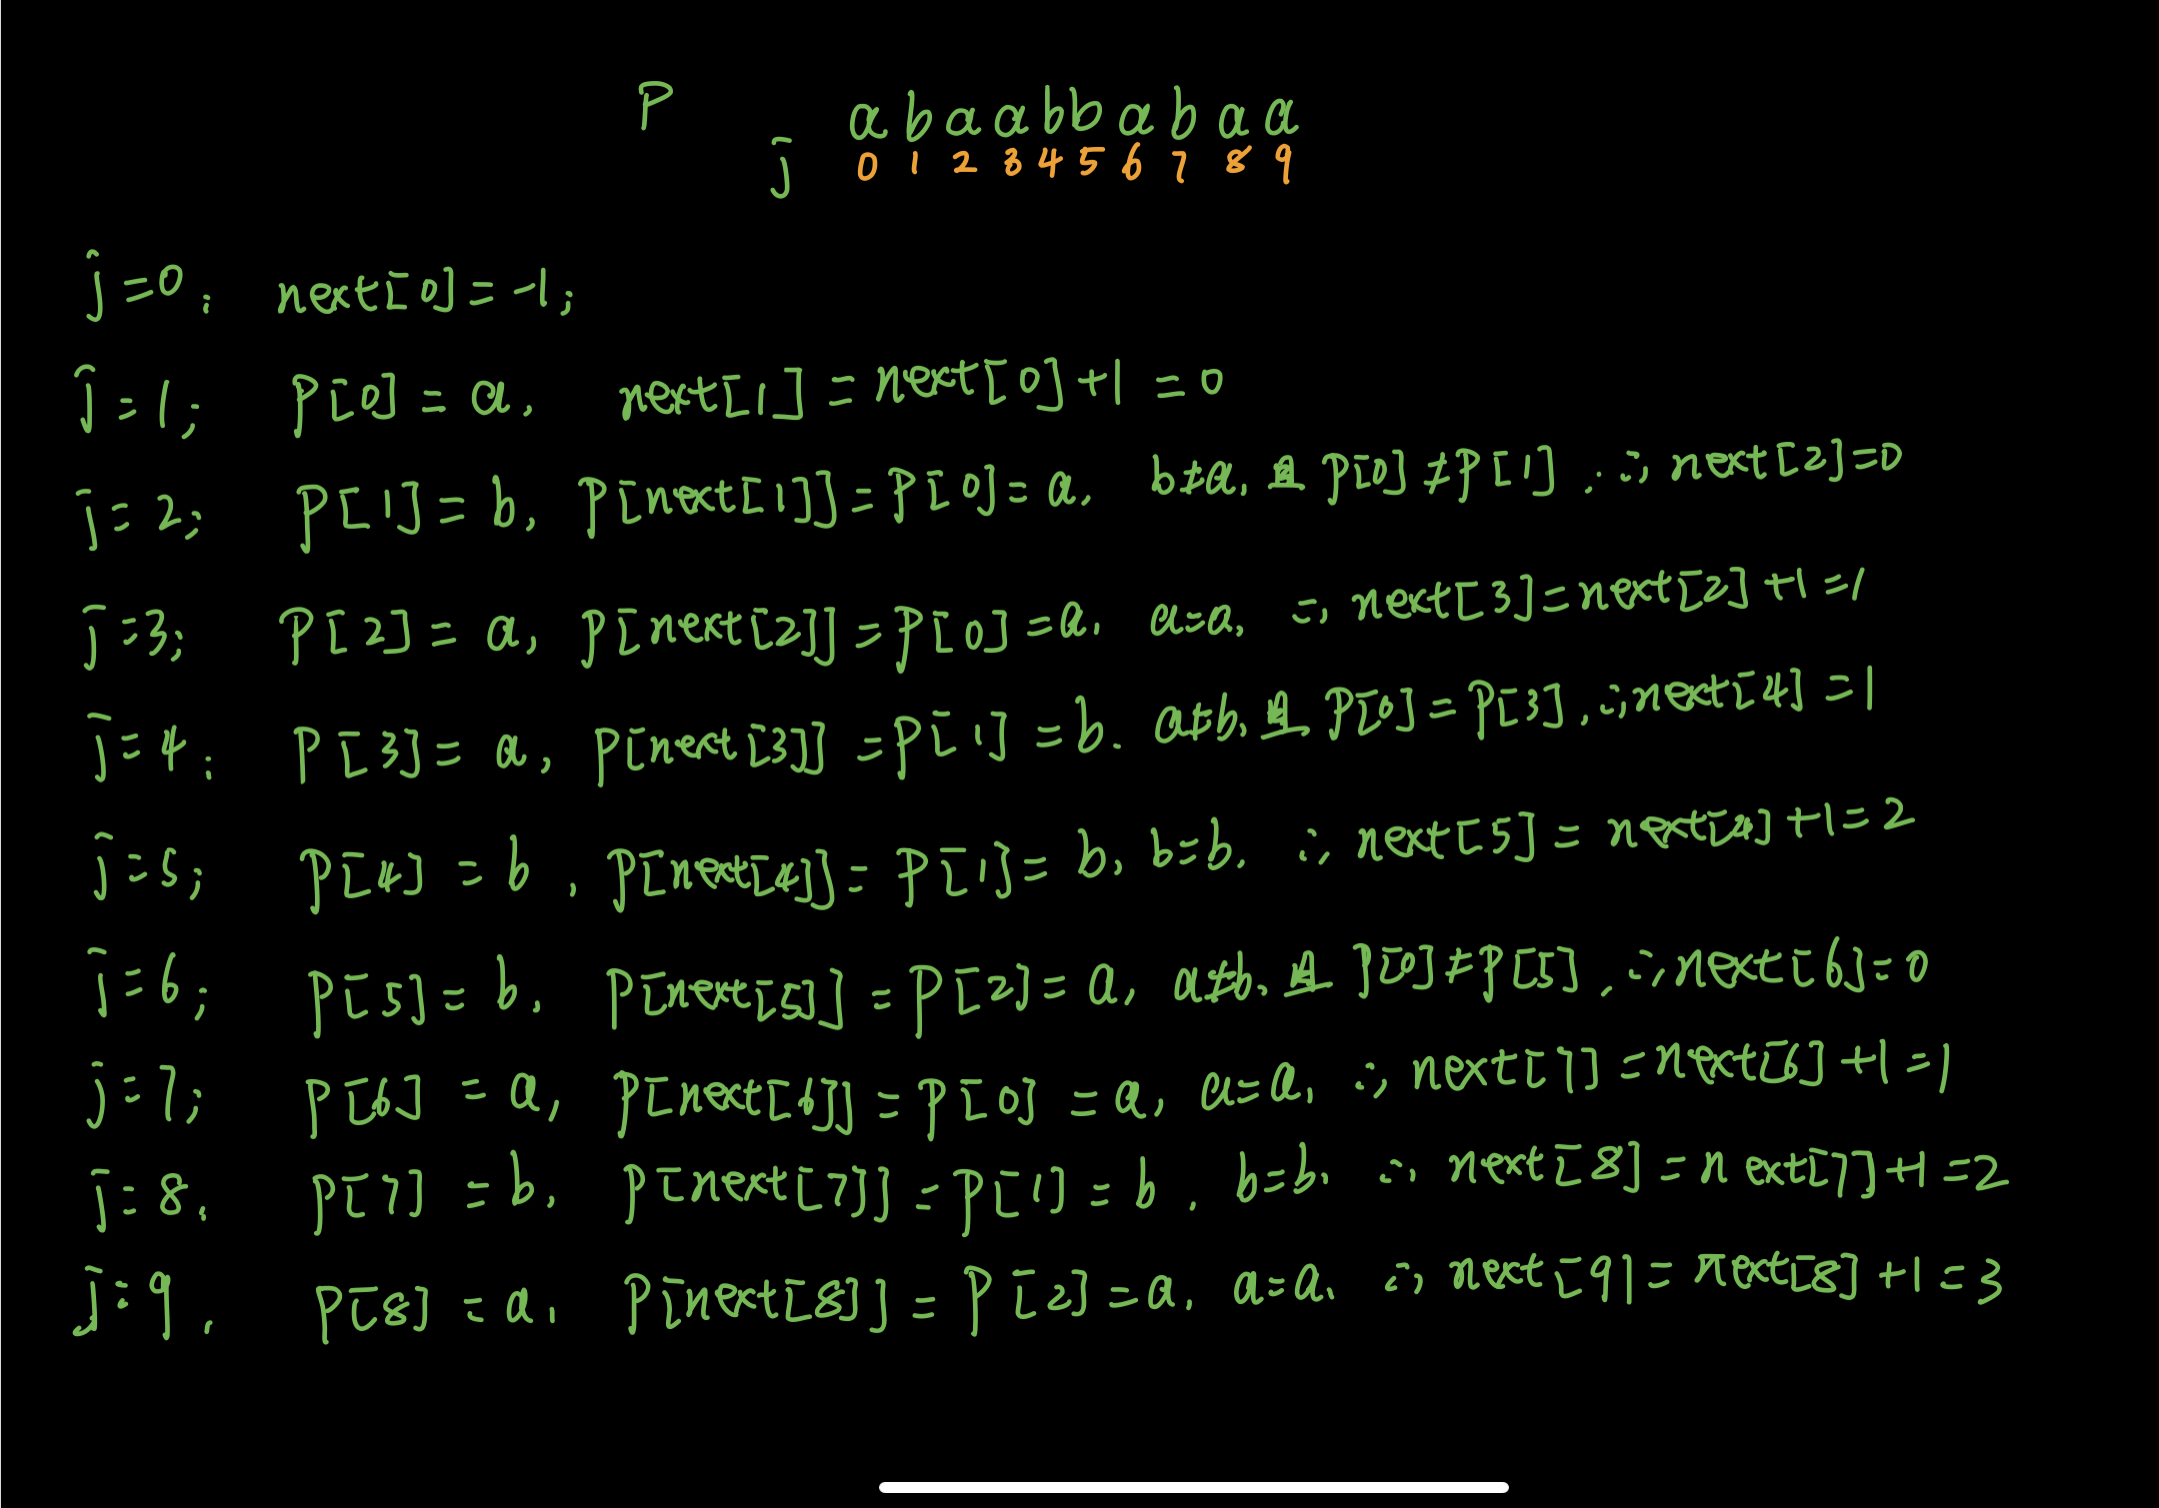 P a b a a b b a b a a
j 0 1 2 3 4 5 6 7 8 9
j=0; next[0]=-1;
j=1; P[0]=a, next[1]=next[0]+1=0
j=2; P[1]=b, P[next[1]]=P[0]=a, b≠a, 且 P[0]≠P[1], ∴ next[2]=0
j=3; P[2]=a, P[next[2]]=P[0]=a, a=a, ∴ next[3]=next[2]+1=1
j=4; P[3]=a, P[next[3]]=P[1]=b. a≠b, 且 P[0]=P[3], ∴ next[4]=1
j=5; P[4]=b, P[next[4]]=P[1]=b, b=b, ∴ next[5]=next[4]+1=2
j=6; P[5]=b, P[next[5]]=P[2]=a, a≠b, 且 P[0]≠P[5], ∴ next[6]=0
j=7; P[6]=a, P[next[6]]=P[0]=a, a=a, ∴ next[7]=next[6]+1=1
j=8, P[7]=b, P[next[7]]=P[1]=b, b=b, ∴ next[8]=next[7]+1=2
j=9, P[8]=a, P[next[8]]=P[2]=a, a=a, ∴ next[9]=next[8]+1=3